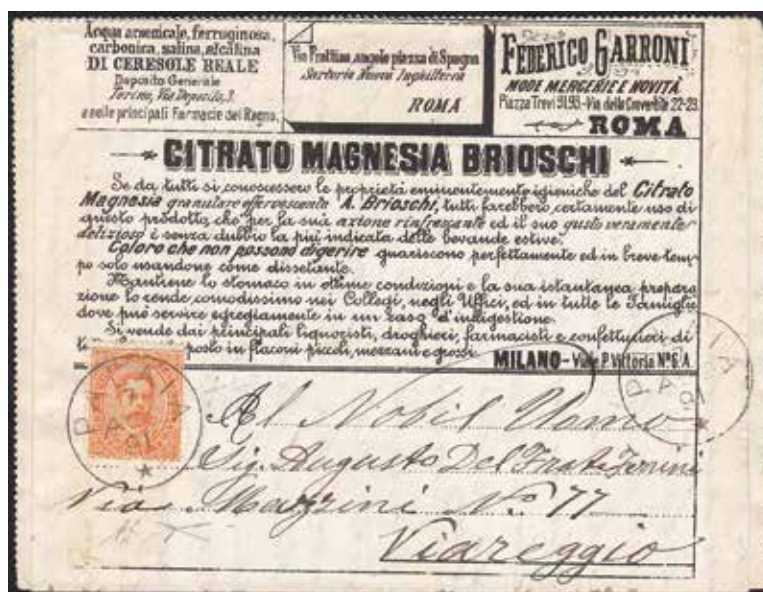 Acqua arsenicale, ferruginosa,
carbonica, salina, alcalina
DI CERESOLE REALE
Deposito Generale
Torino, Via Deposito, 3.
e nelle principali Farmacie del Regno.
Via Frattina, angolo piazza di Spagna
Sartoria Nuova Inghilterra
ROMA
FEDERICO GARRONI
MODE MERCERIE E NOVITÀ
Piazza Trevi 91.93-Via delle Convertite 22-23
ROMA
CITRATO MAGNESIA BRIOSCHI
Se da tutti si conoscessero le proprietà eminentemente igieniche del Citrato
Magnesia granulare effervescente A. Brioschi, tutti farebbero certamente uso di
questo prodotto, che per la sua azione rinfrescante ed il suo gusto veramente
delizioso è senza dubbio la più indicata delle bevande estive.
Coloro che non possono digerire guariscono perfettamente ed in breve tem-
po solo usandone come dissetante.
Mantiene lo stomaco in ottime condizioni e la sua istantanea prepara
zione lo rende comodissimo nei Collegi, negli Uffici, ed in tutte le Famiglie
dove può servire egregiamente in un caso d'indigestione.
Si vende dai principali liquoristi, droghieri, farmacisti e confetturieri di
posto in flaconi piccoli, mezzani e grossi.
MILANO - Viale P. Vittoria Nº 6 A.
Al Nobil Uomo
Sig. Augusto Del
Via Mazzini Nº 77
Viareggio